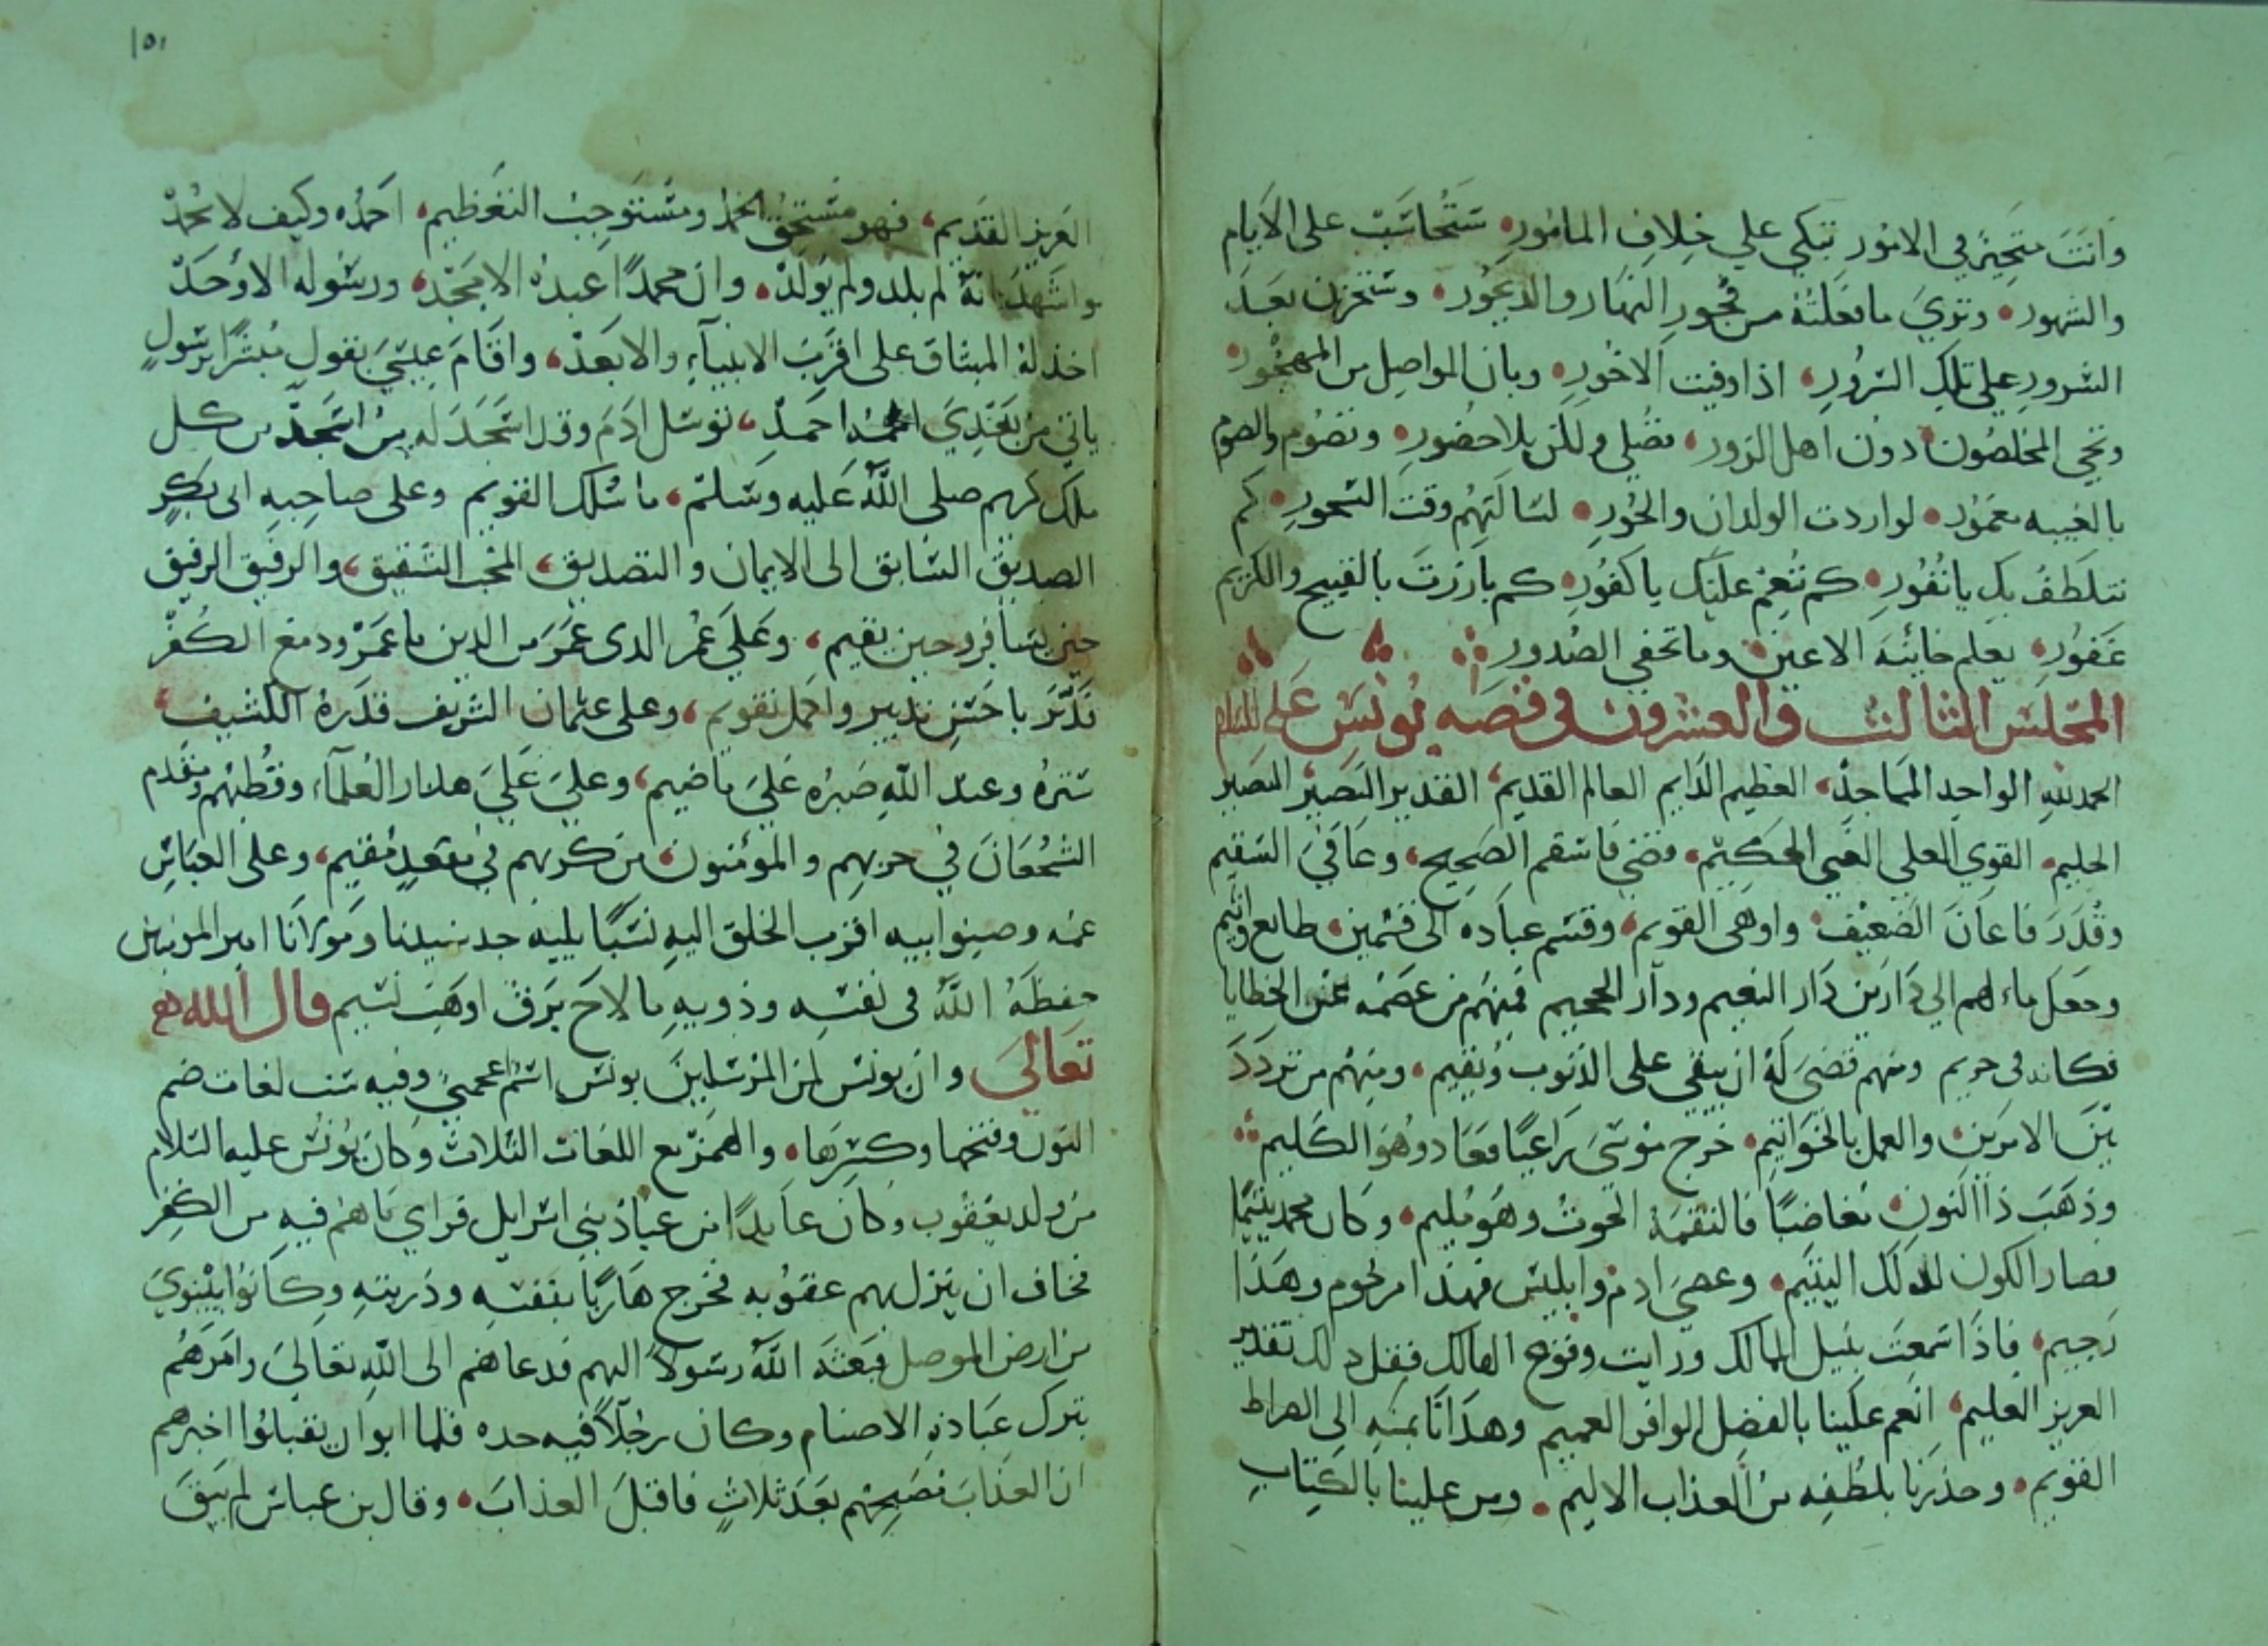 وانت متحير في الامور تبكي علي خلاف المامور ستحاسب على الايام
والشهور وتري ما فعلته من فجور النهار والديجور وستحزن بعد
السرور علي تلك الشرور اذا وفيت الاجور وبان المواصل من المهجور
ونجي المخلصون دون اهل الزور تصلي ولكن بلا حضور وتصوم والصوم
بالغيبه مغمور لو اردت الولدان والحور لسالتهم وقت السحور كم
نتلطف بك يا نفور كم ننعم عليك يا كفور كم بارزت بالقبيح والكريم
غفور يعلم خاينه الاعين وما تخفي الصدور
المجلس الثالث والعشرون في قصه يونس عليه السلام
الحمد لله الواحد الماجد العظيم الدايم العالم القديم القدير البصير النصير
الحليم القوي العلي الغني الحكيم قضي فاسقم الصحيح وعافي السقيم
وقدر فاعان الضعيف واوهى القويم وقسم عباده الى قسمين طايع واثيم
وجعل مالهم الي دارين دار النعيم ودار الجحيم فمنهم من عصمه من الخطايا
فكانه في حريم ومنهم قضي له ان يبقي على الذنوب ويقيم ومنهم من تردد
بين الامرين والعمل بالخواتيم خرج موسى راعيا فعاد وهو الكليم
وذهب ذا النون مغاضبا فالتقمه الحوت وهو مليم وكان محمد يتيما
فصار الكون لذلك اليتيم وعصى ادم وابليس فهذا مرحوم وهذا
رجيم فاذا سمعت بنيل الممالك ورايت وقوع المهالك فقل ذلك تقدير
العزيز العليم انعم علينا بالفضل الوافر العميم وهدانا بمنه الى الصراط
القويم وحذرنا بلطفه من العذاب الاليم ومن علينا بالكتاب
١٥١
العزيز القديم فهو مستحق الحمد ومستوجب التعظيم احمده وكيف لا يحمد
واشهد انه لم يلد ولم يولد وان محمدا عبده الامجد ورسوله الاوحد
اخذ له الميثاق على اقرب الانبياء والابعد واقام عيسى يقول مبشرا برسول
ياتي من بعدي اسمه احمد توسل ادم وقد اسجد له من اسجد من كل
ملك كريم صلى الله عليه وسلم ما سلك القويم وعلى صاحبه ابى بكر
الصديق السابق الى الايمان والتصديق المحب الشفيق والرفيق الرفيق
حين يسافر وحين يقيم وعلي عمر الذى عمر من الدين ما عمر ودفع الكفر
فدبر باحسن تدبير واكمل تقويم وعلى عثمان الشريف قدره الكثيف
ستره وعند الله صبره علي ما ضيم وعلي علي مدار العلماء وقطبهم ومقدم
الشجعان في حربهم والمؤمنون من كربهم في مقعد مقيم وعلى العباس
عمه وصنو ابيه اقرب الخلق اليه نسبا يليه جد سيدنا ومولانا امير المومنين
حفظه الله فى نفسه وذويه ما لاح برق او هب نسيم قال الله
تعالي وان يونس لمن المرسلين يونس اسم اعجمي وفيه ست لغات ضم
النون وفتحها وكسرها والهمز مع اللغات الثلاث وكان يونس عليه السلام
من ولد يعقوب وكان عابدا من عباد بني اسرايل فراي ما هم فيه من الكفر
فخاف ان ينزل بهم عقوبه فخرج هاربا بنفسه وذريته وكانوا بنينوي
من ارض الموصل فبعثه الله رسولا اليهم فدعاهم الى الله تعالي وامرهم
بترك عبادة الاصنام وكان رجلا فيه حده فلما ابوا ان يقبلوا اخبرهم
ان العذاب مصبحهم بعد ثلاث فاقبل العذاب وقال بن عباس لم يبق